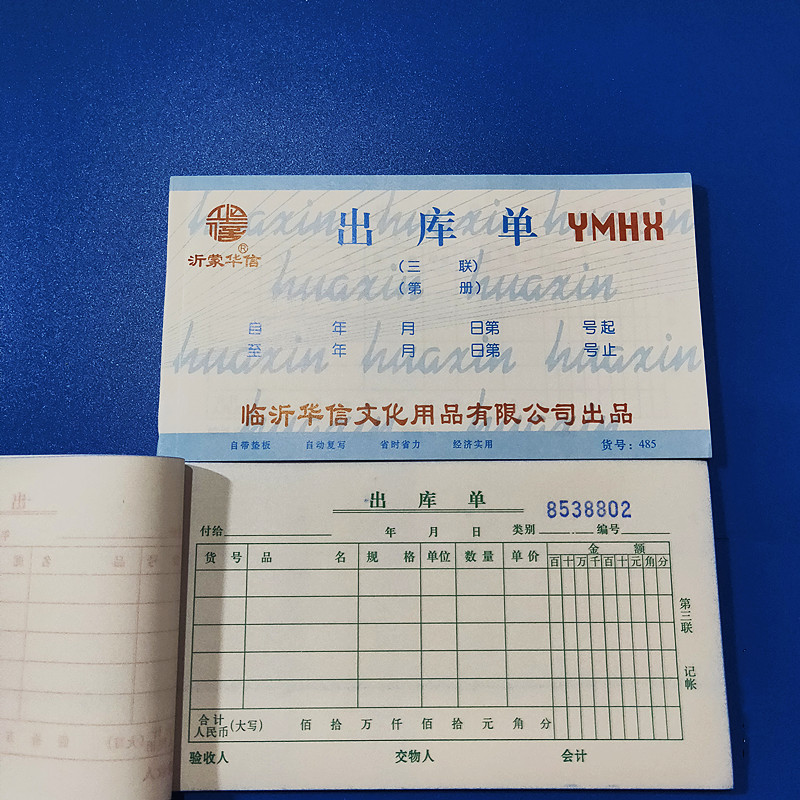 huaxin huaxin huaxin
出库单 YMHX
沂蒙华信®
(三 联)
(第 册)
huaxin huaxin
自 年 月 日第 号起
至 年 月 日第 号止
huaxin huaxin huaxin
临沂华信文化用品有限公司出品
自带垫板 自动复写 省时省力 经济实用 货号：485
出库单
8538802
付给 年 月 日 类别 编号
货号 品名 规格 单位 数量 单价 金额
百十万千百十元角分
第三联 记帐
合计人民币(大写) 佰 拾 万 仟 佰 拾 元 角 分
验收人 交物人 会计